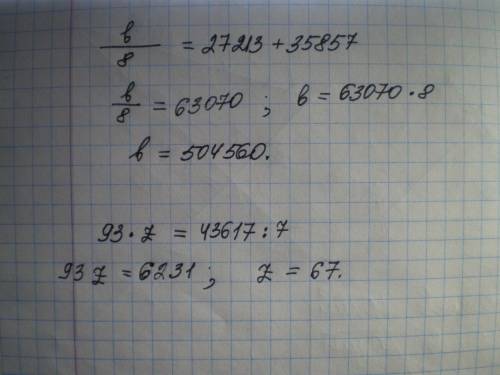 b/8 = 27213 + 35857
b/8 = 63070 ; b = 63070 · 8
b = 504560.
93 · z = 43617 : 7
93 z = 6231 ; z = 67.